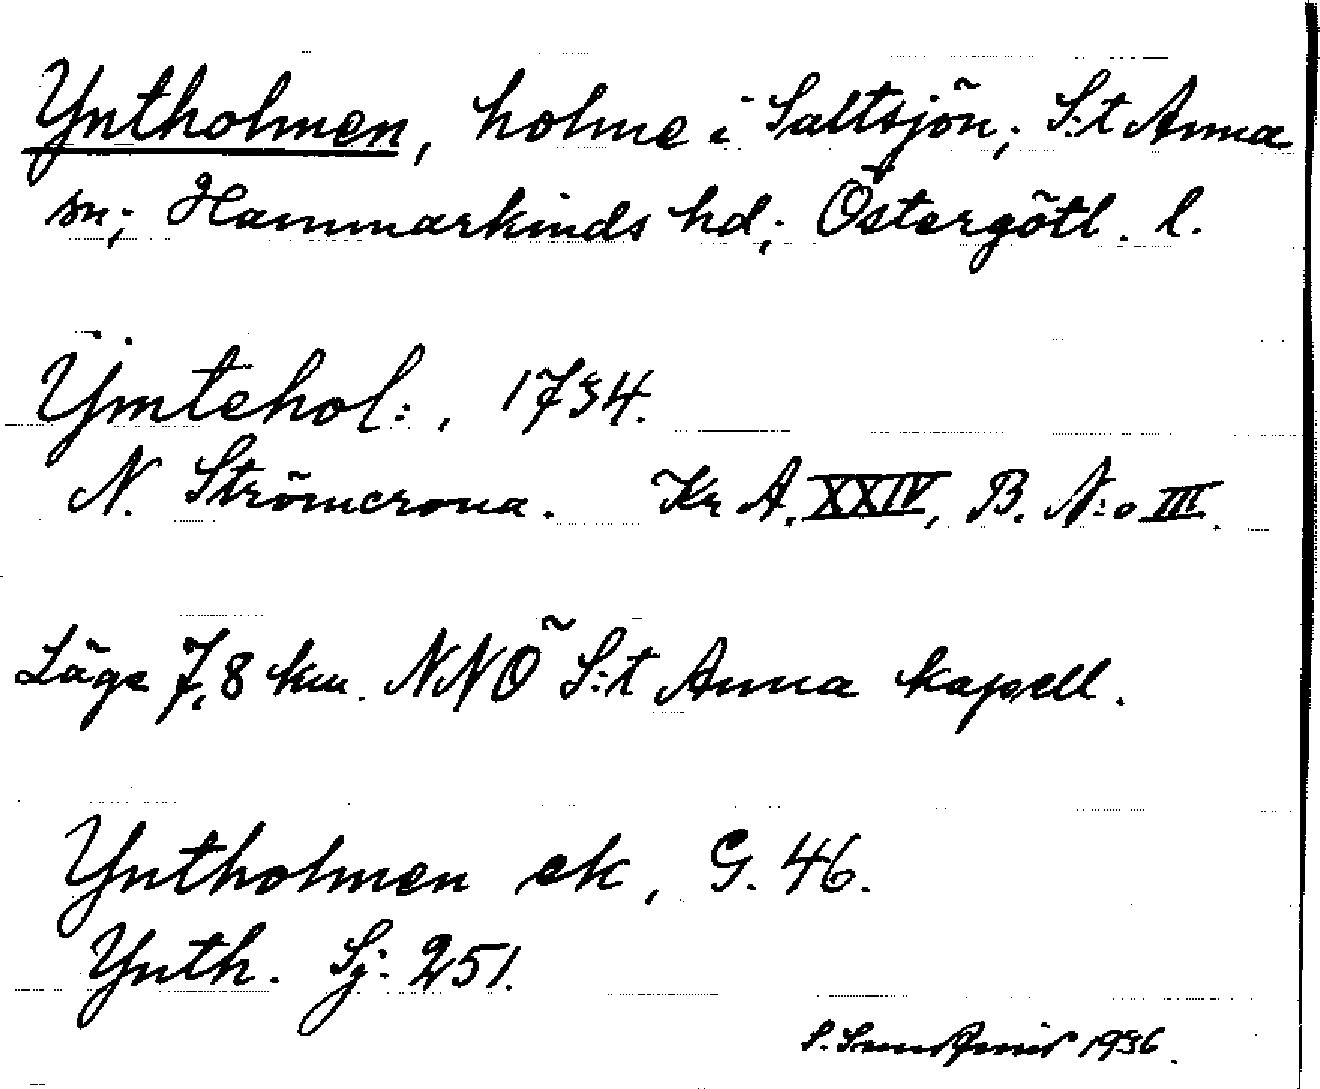 Yntholmen, holme i Saltsjön, S:t Anna
sn; Hammarkinds hd; Östergötl. l.
Ÿmtehol:, 1734.
N. Strömcrona. Kr A. XXIV, B. N:o III.
Läge 7,8 km. NNÖ S:t Anna kapell.
Yntholmen ek, G. 46.
Ynth. Sj. 251.
1936.